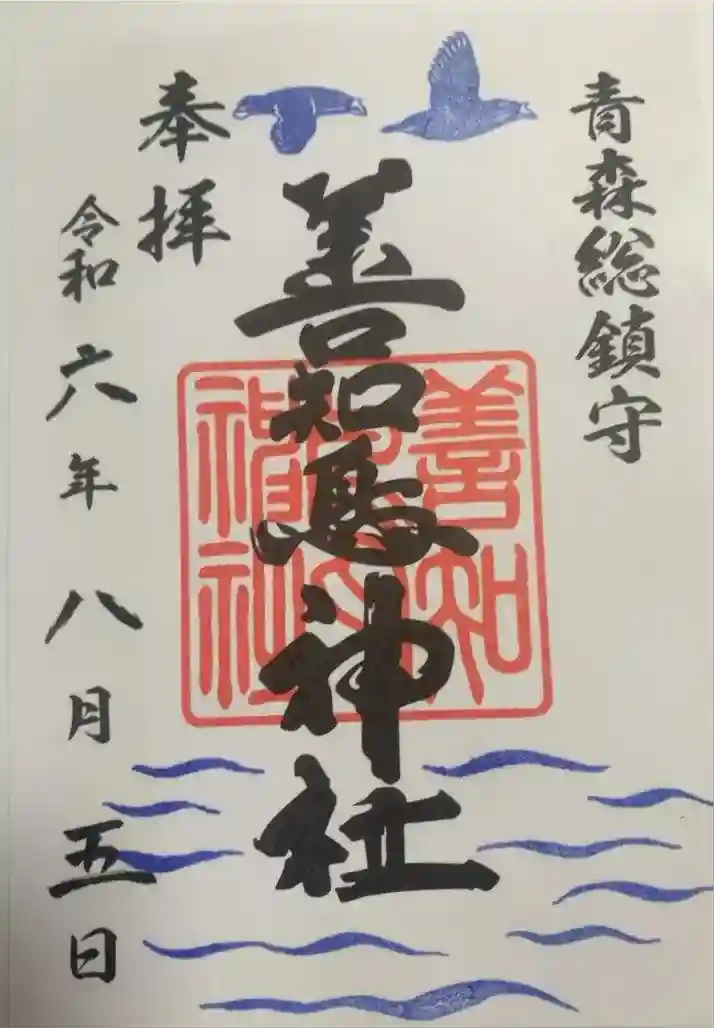 青森総鎮守
善知鳥神社
奉拝
令和六年八月五日
善知
神社